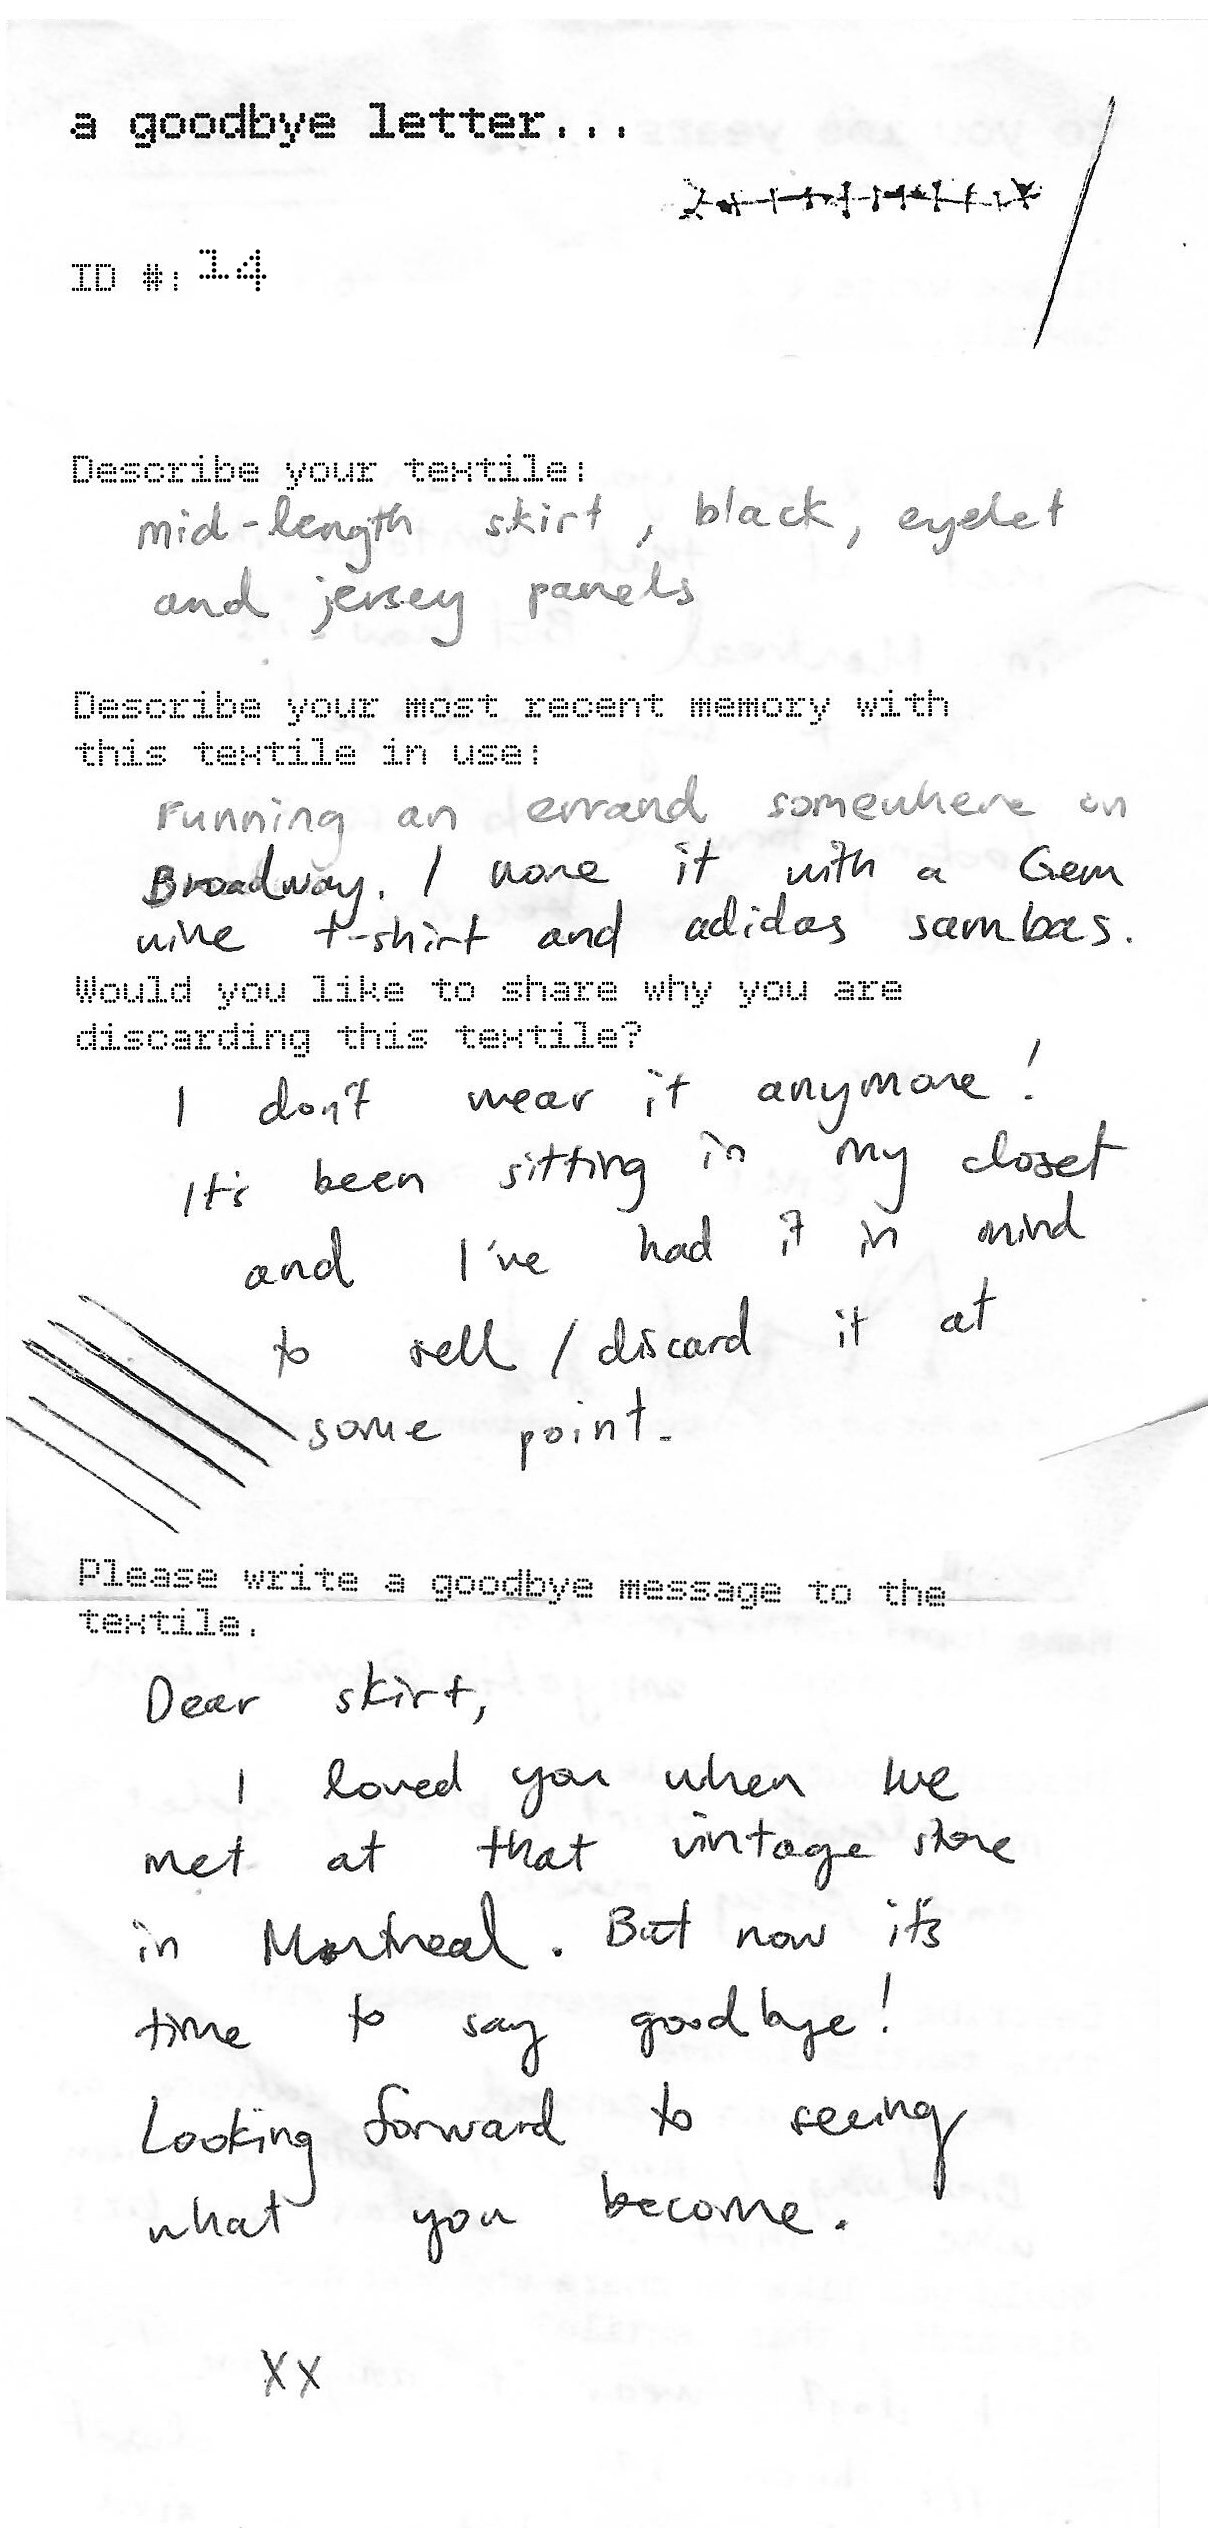 a goodbye letter...
ID #: 14
Describe your textile:
mid-length skirt, black, eyelet
and jersey panels
Describe your most recent memory with
this textile in use:
running an errand somewhere on
Broadway. I wore it with a Gem
wine t-shirt and adidas sambas.
Would you like to share why you are
discarding this textile?
I don't wear it anymore!
It's been sitting in my closet
and I've had it in mind
to sell / discard it at
some point.
Please write a goodbye message to the
textile.
Dear skirt,
I loved you when we
met at that vintage store
in Montreal. But now it's
time to say goodbye!
Looking forward to seeing
what you become.
XX